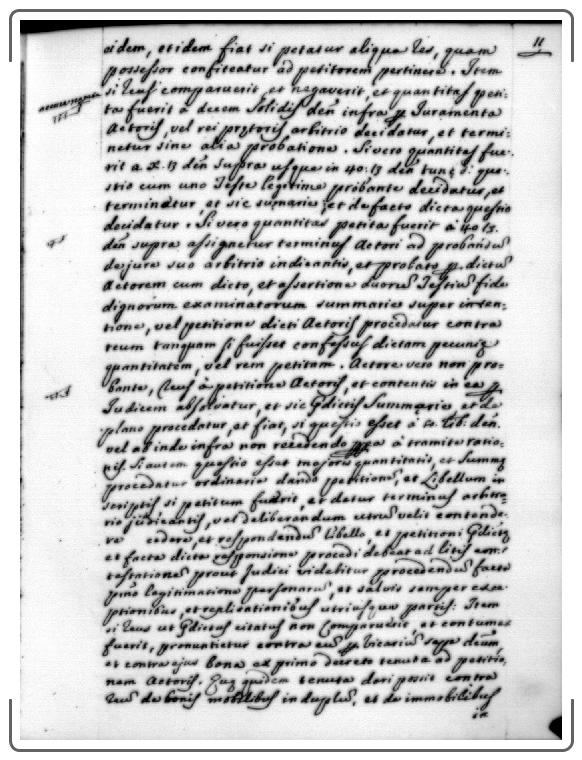 11
eidem, et idem fiat si petatur aliqua res, quam
possessor confiteatur ad petitorem pertinere. Item
si Reus comparuerit, et negaverit, et quantitas peti-
ta fuerit a decem Solidis deń infra p Iuramenta
Actoris, vel rei prętoris arbitrio decidatur, et termi-
netur sine alia probatione. Si vero quantitas fue-
rit a X. ß deń supra usque in 40: ß deń tunc si que-
stio cum uno Teste legitime probante decidatur, et
terminetur, et sic sumarie, et de facto dicta questio
decidatur. Si vero quantitas petita fuerit a 40 ß.
deń supra assignetur terminus Actori ad probandū
de jure suo arbitrio indicantis, et probato p dictū
Actorem cum dicto, et assertione duorū Testiū fide
dignorum examinatorum summarie super inten-
tione, vel petitione dicti Actoris procedatur contra
reum tanquam si fuisset confessus dictam pecunię
quantitatem, vel rem petitam. Actore vero non pro-
bante, Reus à petitione Actoris, et contentis in ea p
Iudicem absolvatur, et sic Pdictis Summarie et de
plano procedatur, et fiat, si questio esset à 10 Lib: deń.
vel ab inde infra non recedendo à tramite ratio-
nis. Si autem questio esset majoris quantitatis, et Summę
procedatur ordinarie dando petitionē, et Libellum in
scriptis si petitum fuerit, et datur terminus arbitr-
rio judicantis, vel deliberandum utrū velit contende-
re cedere, et respondendū libello, et petitioni Pdictę
et facta dicta responsione procedi debeat ad litis con-
testationē prout Iudici videbitur procedendū facta
primo legitimatione personarū, et salvis semper exce-
ptionibus, et replicationibus utriusque partis: Item
si Reus ut Pdictus citatus non Comparuerit et contumax
fuerit, pronuntietur contra eū p Vicariū sepe deum
et contra ejus bona ex primo decreto tenuta ad petitio-
nem Actoris. Quę quidem tenuta dari possit contra
Reū de bonis mobilibus in duplū, et de immobilibus
in